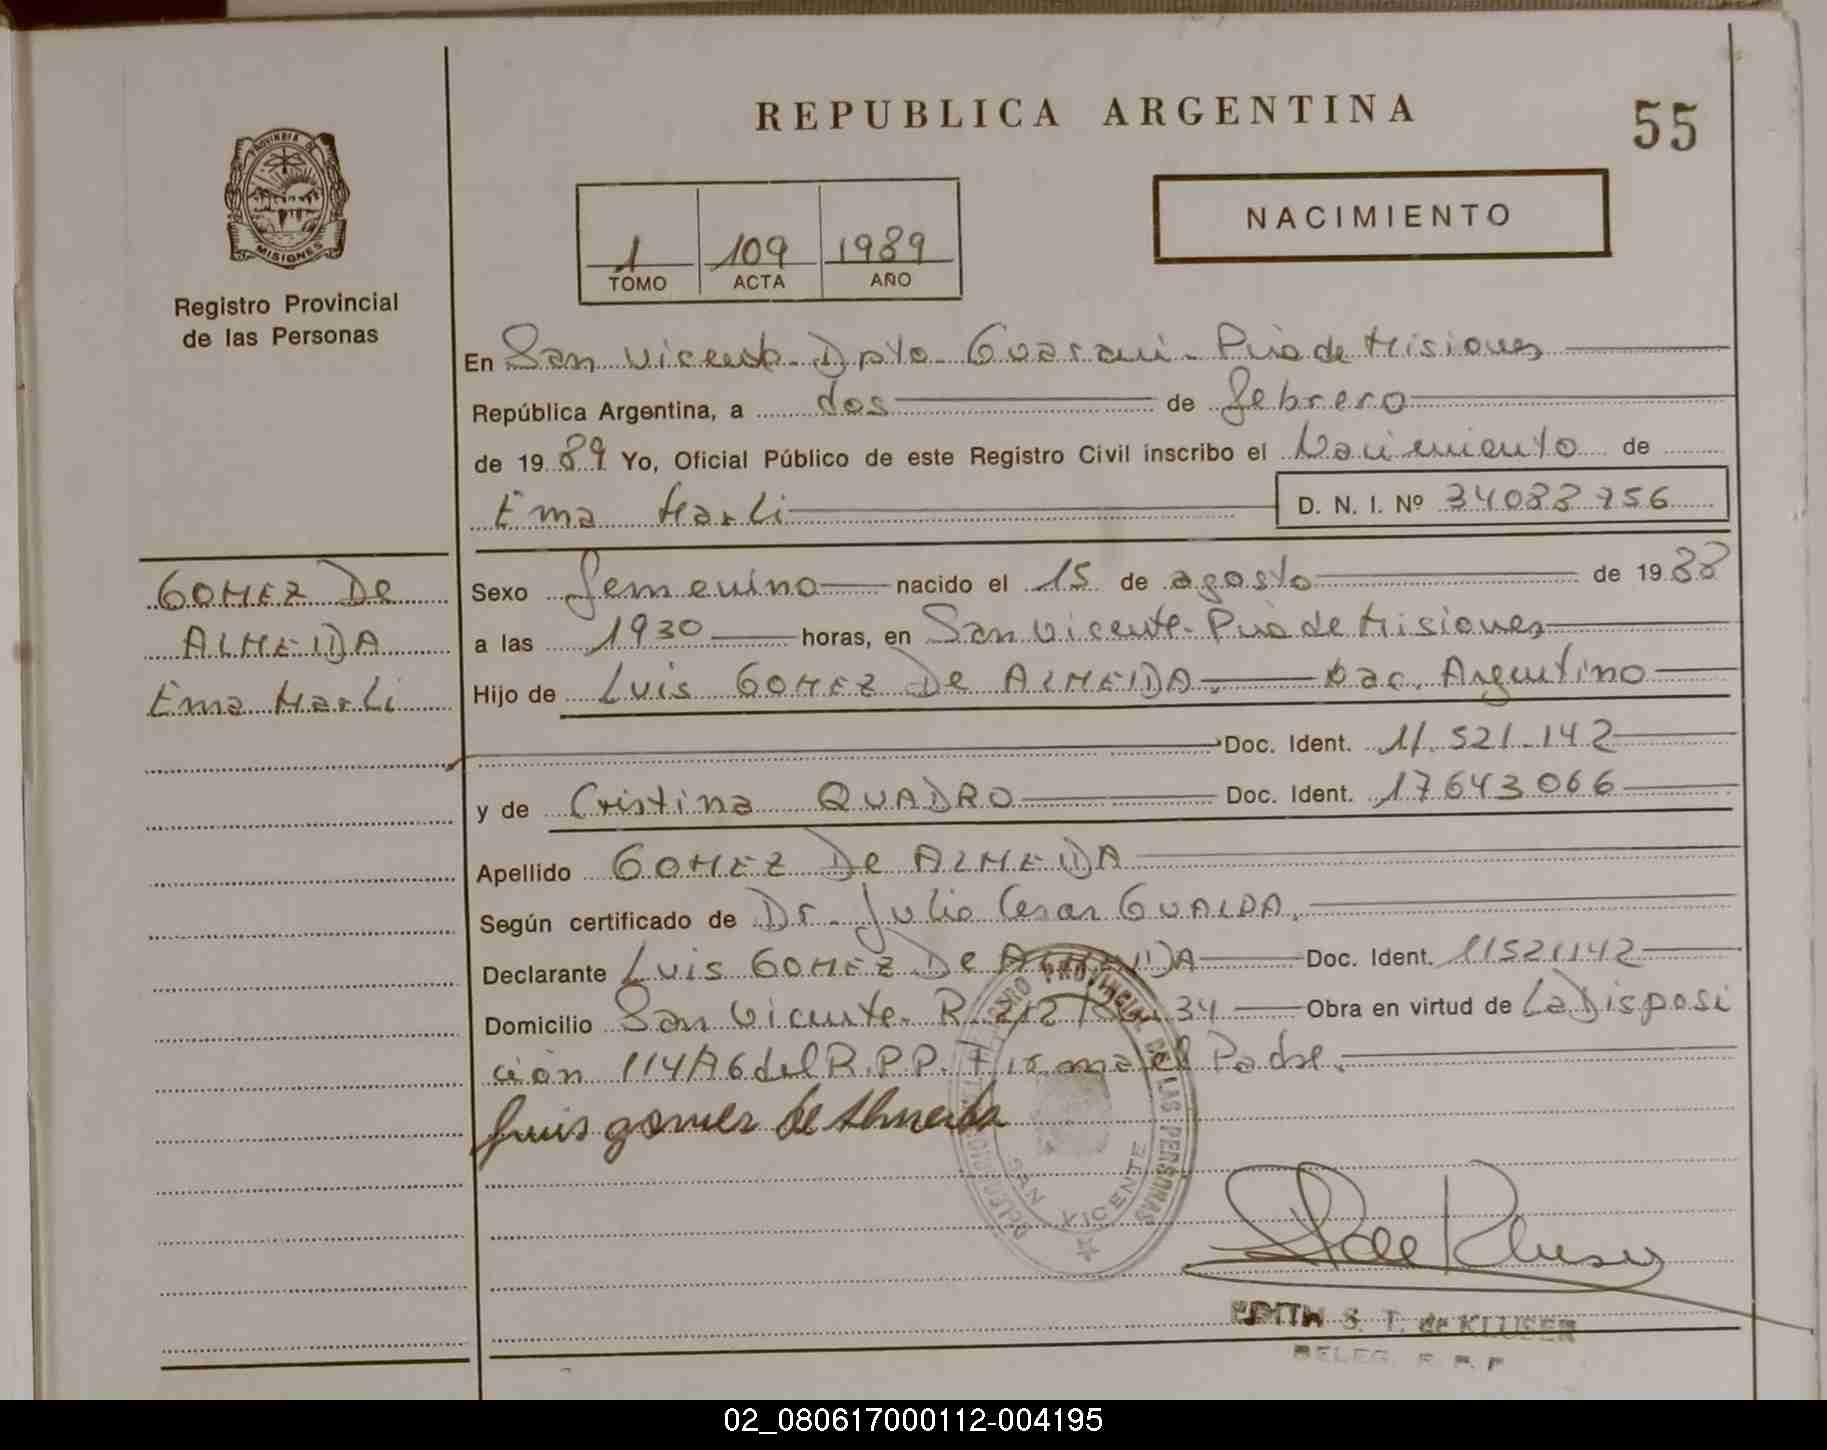 REPUBLICA ARGENTINA
55
PROVINCIA DE
MISIONES
Registro Provincial
de las Personas
1 109 1989
TOMO ACTA AÑO
NACIMIENTO
En San Vicente Dpto Guarani Pcia de Misiones
República Argentina, a dos de febrero
de 1989 Yo, Oficial Público de este Registro Civil inscribo el Nacimiento de
Ema Marli
D. N. I. Nº 34083756
GOMEZ De
ALMEIDA
Ema Marli
Sexo femenino nacido el 15 de agosto de 1988
a las 1930 horas, en San Vicente Pcia de Misiones
Hijo de Luis GOMEZ De ALMEIDA. Nac. Argentino
Doc. Ident. 11.521.142
y de Cristina QUADRO Doc. Ident. 17643066
Apellido GOMEZ De ALMEIDA
Según certificado de Dr. Julio Cesar GUALDA.
Declarante Luis GOMEZ De ALMEIDA Doc. Ident. 11521142
Domicilio San Vicente. R. 212 Km 34 Obra en virtud de La Disposi
ción 114/86 del R.P.P. Firma el Padre.
Luis gomes de Almeida
REGISTRO PROVINCIAL DE LAS PERSONAS
SAN VICENTE
EDITH S. T. de KLUSER
DELEG. R. P. P
02_080617000112-004195